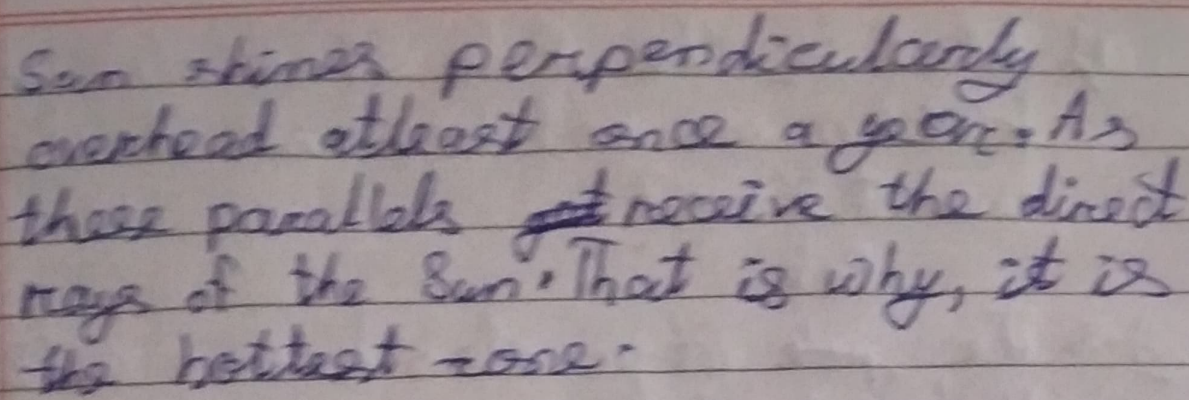 Sun shines perpendicularly
overhead atleast once a year. As
these parallels receive the direct
rays of the Sun. That is why, it is
the hottest zone.